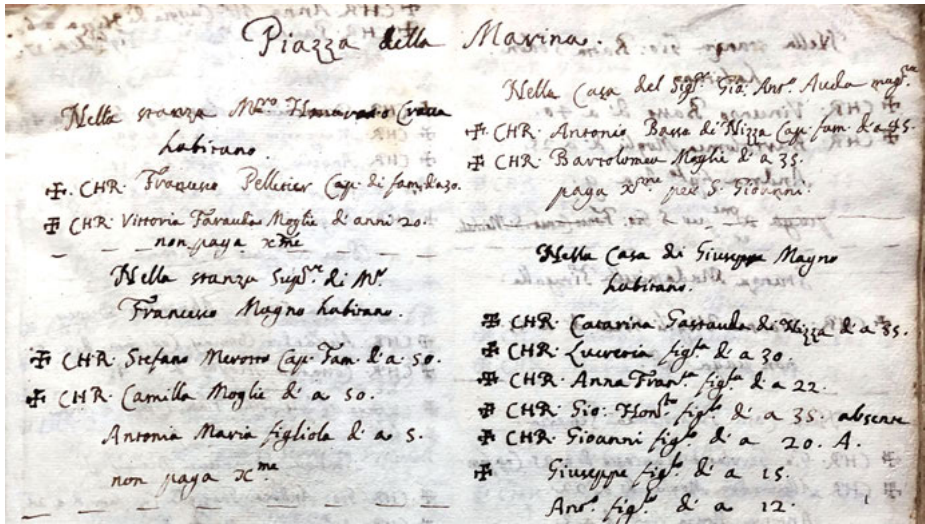 Piazza della Marina.
Nella stanza M.ro Honorato
habitano.
✠ CHR. Francesco Pelletier Cap. di fam. d'a 30.
✠ CHR. Vittoria Farauda Moglie d'anni 20.
non paga x.me
Nella stanza Sup.re di M.r
Francesco Magno habitano.
✠ CHR. Stefano Merotto Cap. Fam. d'a 50.
✠ CHR. Camilla Moglie d'a 50.
Antonia Maria figliola d'a 5.
non paga x.me
Nella Casa del Sig.r Gio. Ant.o Aueda
✠ CHR. Antonio Basso di Nizza Cap. fam. d'a 45.
✠ CHR. Bartolomea Moglie d'a 35.
paga x.me per S. Giovanni.
Nella Casa di Giuseppe Magno
habitano.
✠ CHR. Catarina Gastauda di Nizza d'a 55.
✠ CHR. Lucretia figl.a d'a 30.
✠ CHR. Anna Fran.ca figl.a d'a 22.
✠ CHR. Gio. Hon.to figl.o d'a 35. absente
✠ CHR. Gioanni figl.o d'a 20. A.
✠ Giuseppe figl.o d'a 15.
Ant.o figl.o d'a 12.